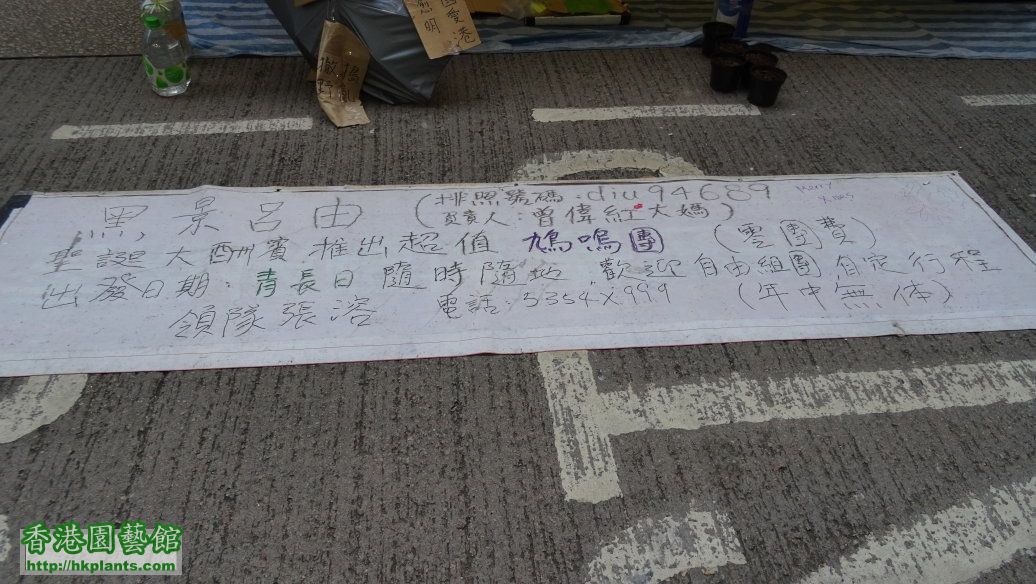 愛港
黑景呂由
(排照號碼:diu94689
負責人:曾偉紅大媽)
Merry
X'mas
聖誕大酬賓 推出超值 鳩嗚團 (零團費)
出發日期:青長日 隨時隨地 歡迎自由組團 自定行程
領隊張溶 電話:5354X999 (年中無休)
香港園藝館
http://hkplants.com